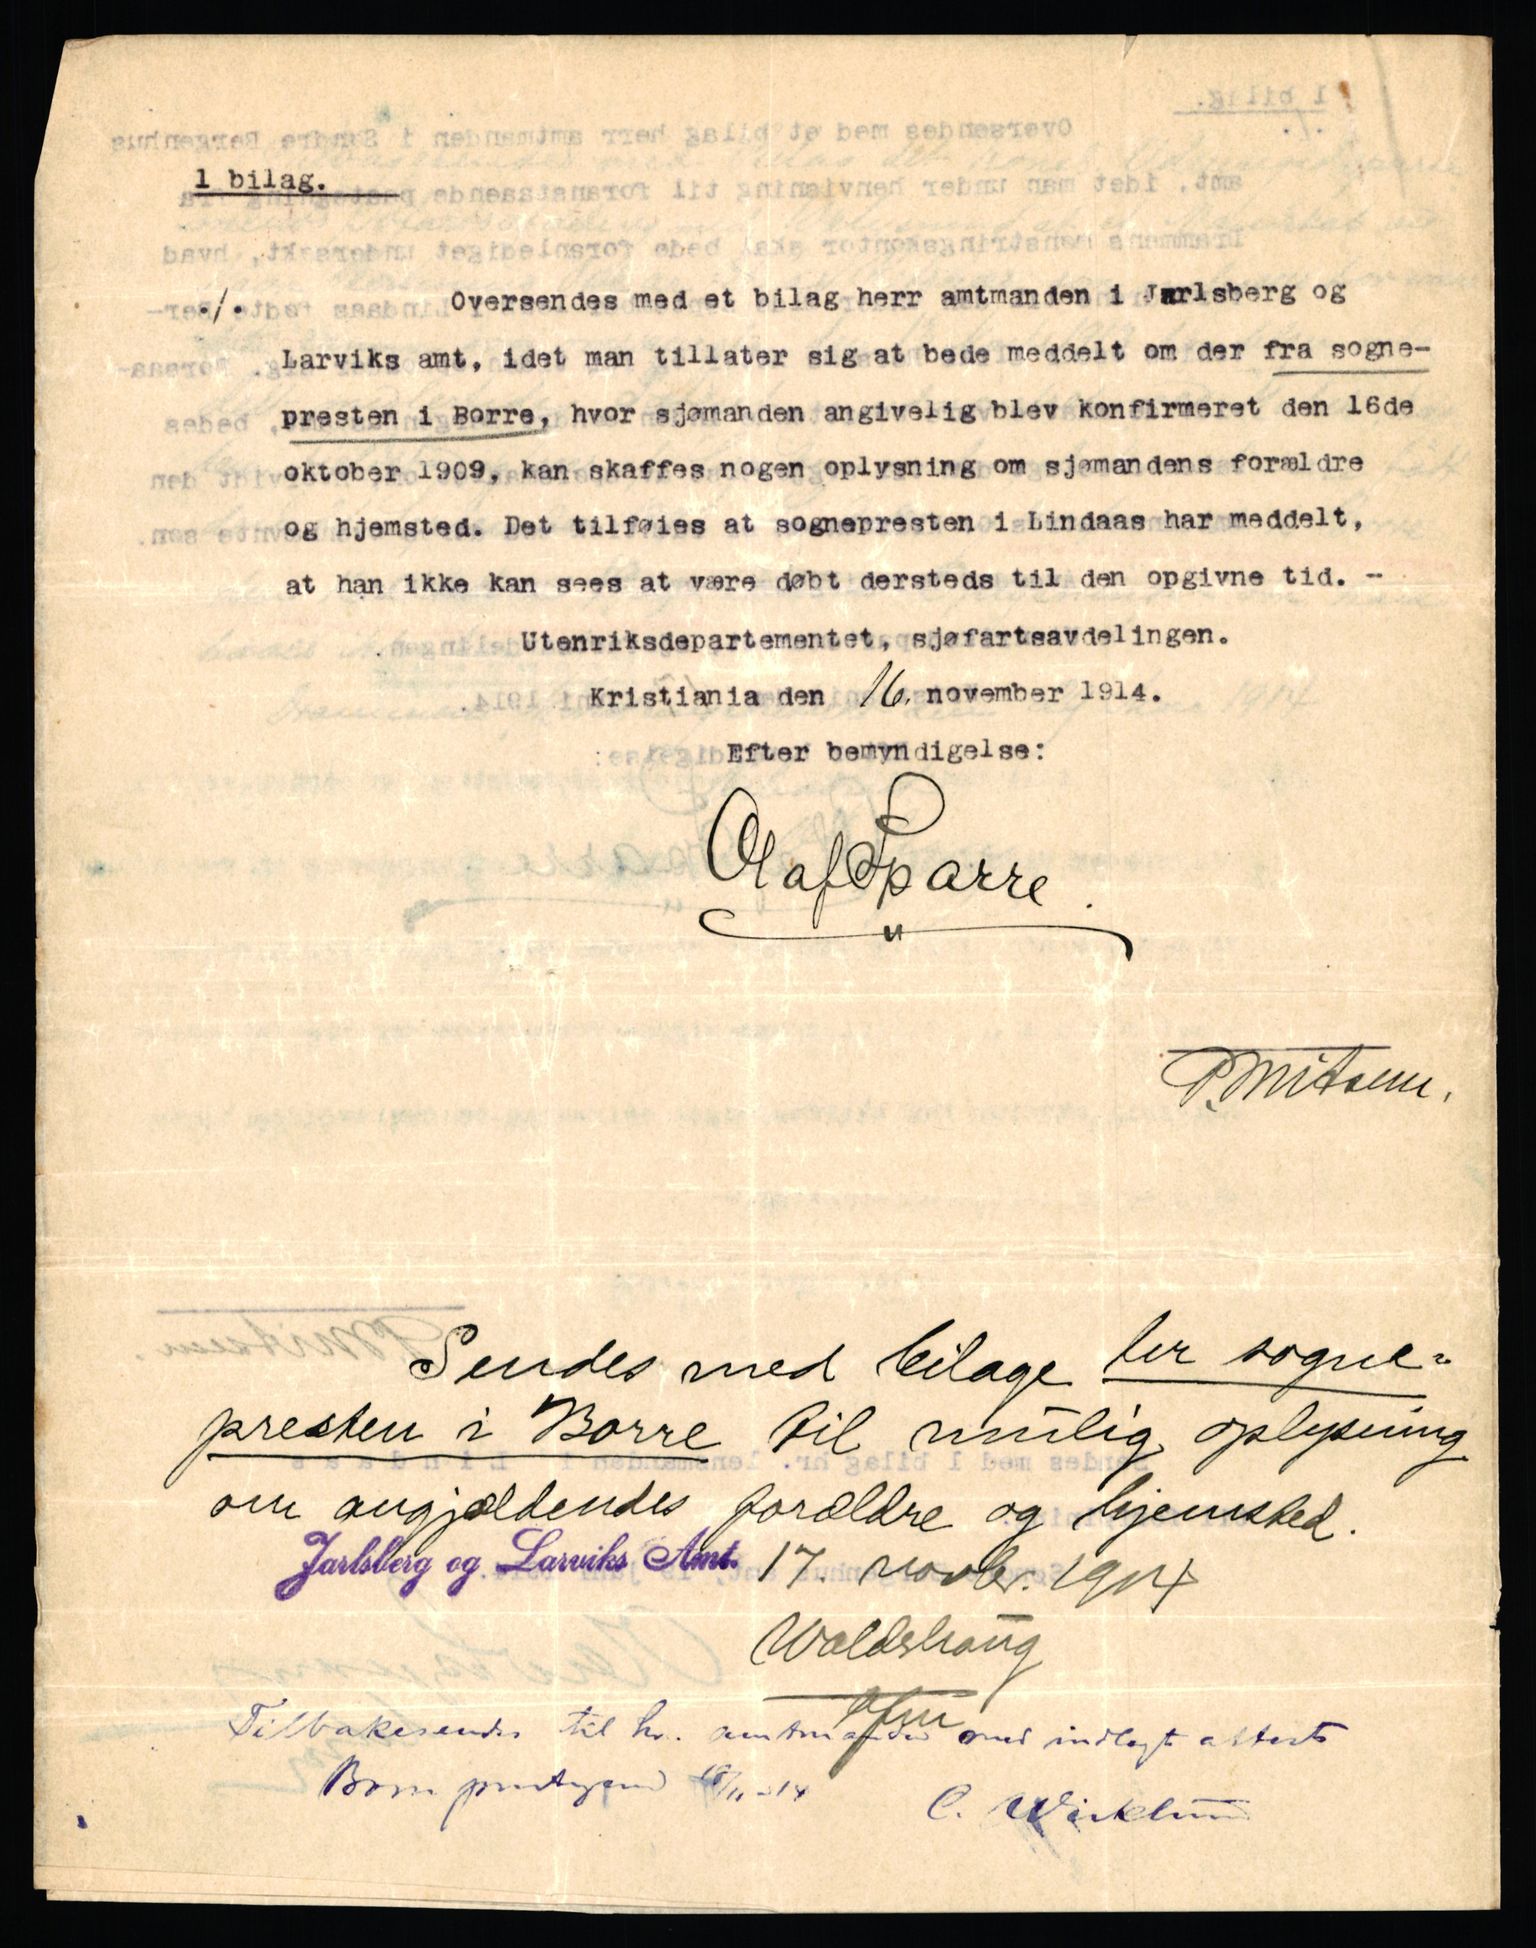 1 bilag.
./. Oversendes med et bilag herr amtmanden i Jarlsberg og
Larviks amt, idet man tillater sig at bede meddelt om der fra sogne-
presten i Borre, hvor sjømanden angivelig blev konfirmeret den 16de
oktober 1909, kan skaffes nogen oplysning om sjømandens forældre
og hjemsted. Det tilføies at sognepresten i Lindaas har meddelt,
at han ikke kan sees at være døbt dersteds til den opgivne tid. -
Utenriksdepartementet, sjøfartsavdelingen.
Kristiania den 16. november 1914.
Efter bemyndigelse:
Olaf Sparre.
Sendes med bilage hr sogne-
presten i Borre til mulig oplysning
om angjældendes forældre og hjemsted.
Jarlsberg og Larviks Amt. 17. novbr. 1914
Tilbakesendes til hr. amtmanden med indlagt attest
18/11-14
C. Wicklund